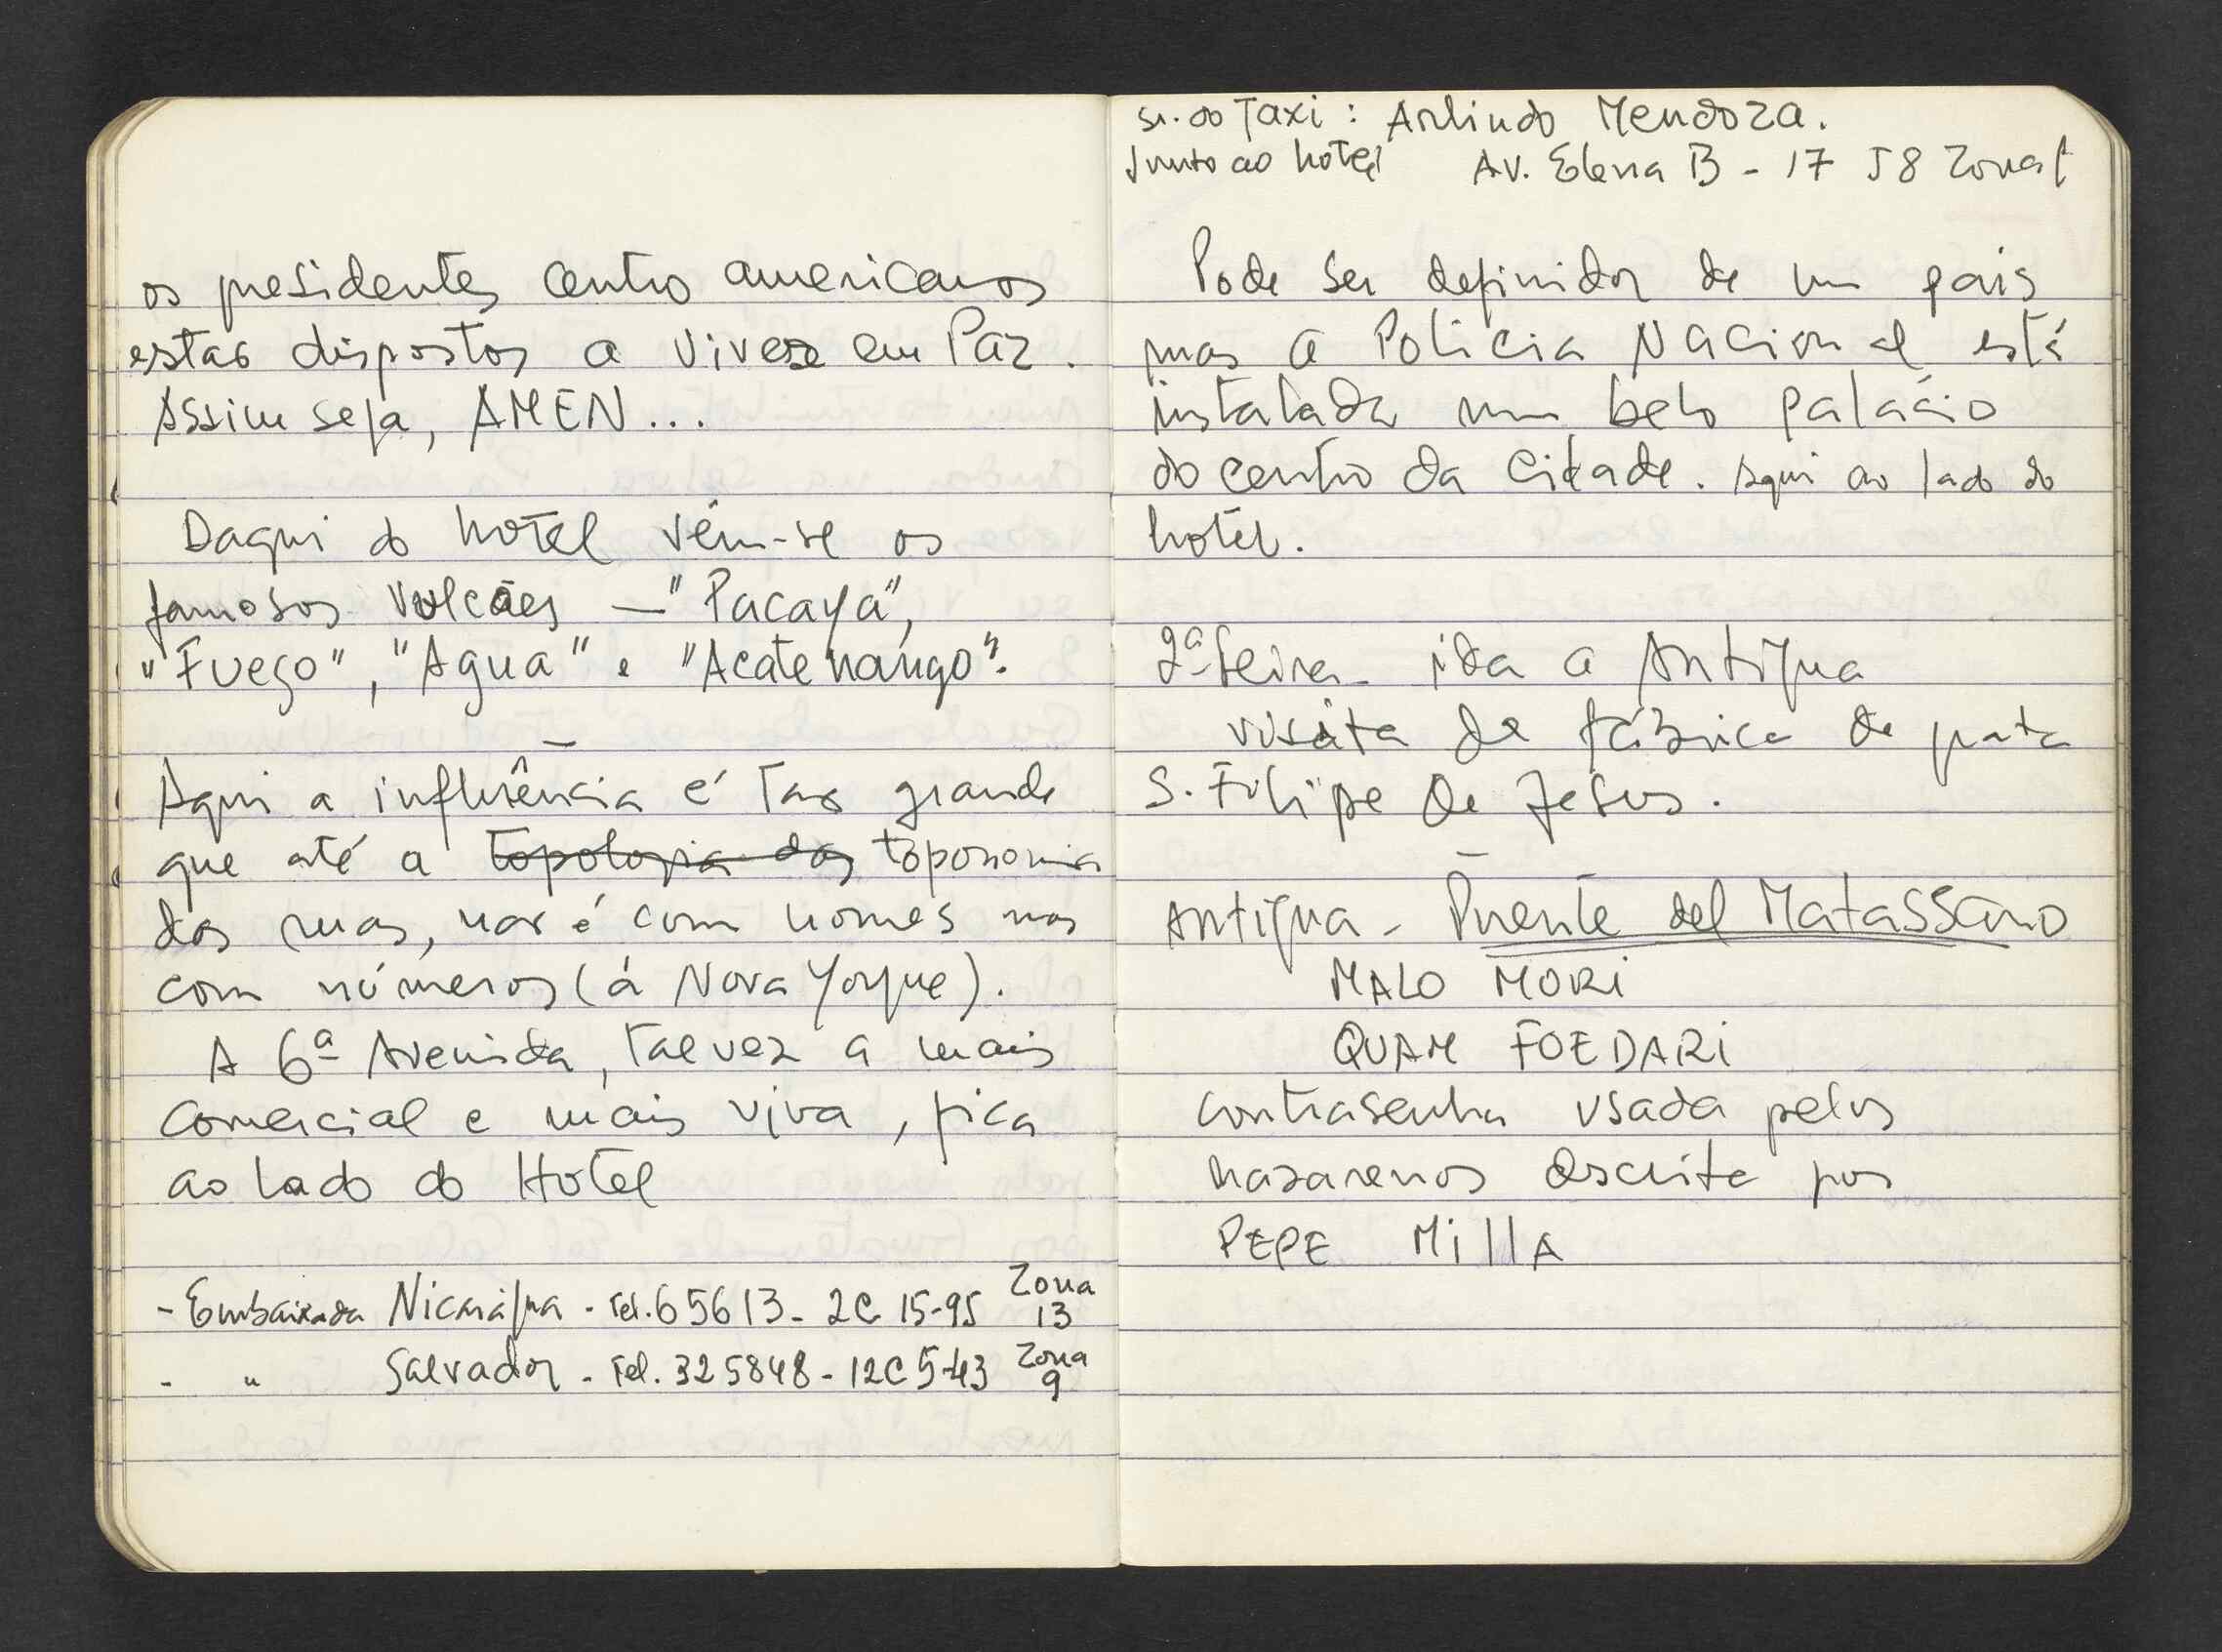 os presidentes centro americanos
estão dispostos a viver em Paz.
Assim seja, AMEN...
Daqui do hotel vêm-se os
famosos vulcões — "Pacaya",
"Fuego", "Agua" e "Acatenango".
—
Aqui a influência é tão grande
que até a topologia das toponomia
das ruas, não é com nomes mas
com números (á Nova Yorque).
A 6ª Avenida, talvez a mais
comercial e mais viva, fica
ao lado do Hotel
- Embaixada Nicarágua - Tel. 65613 - 2C 15-95 Zona 13
- " Salvador - Tel. 325848 - 12C 5-43 Zona 9
Sr. do Taxi : Arlindo Mendoza.
Junto ao hotel Av. Elena B - 17 58 Zona 1
Pode ser definidor de um país
mas a Policia Nacional está
instalada num belo palácio
do centro da Cidade. Aqui ao lado do
hotel.
2ª feira - ida a Antigua
visita da fábrica de prata
S. Filipe de Jesus.
—
Antigua - Puente del Matassano
MALO MORI
QUAM FOEDARI
contrasenha usada pelos
nazarenos descrita por
PEPE MillA